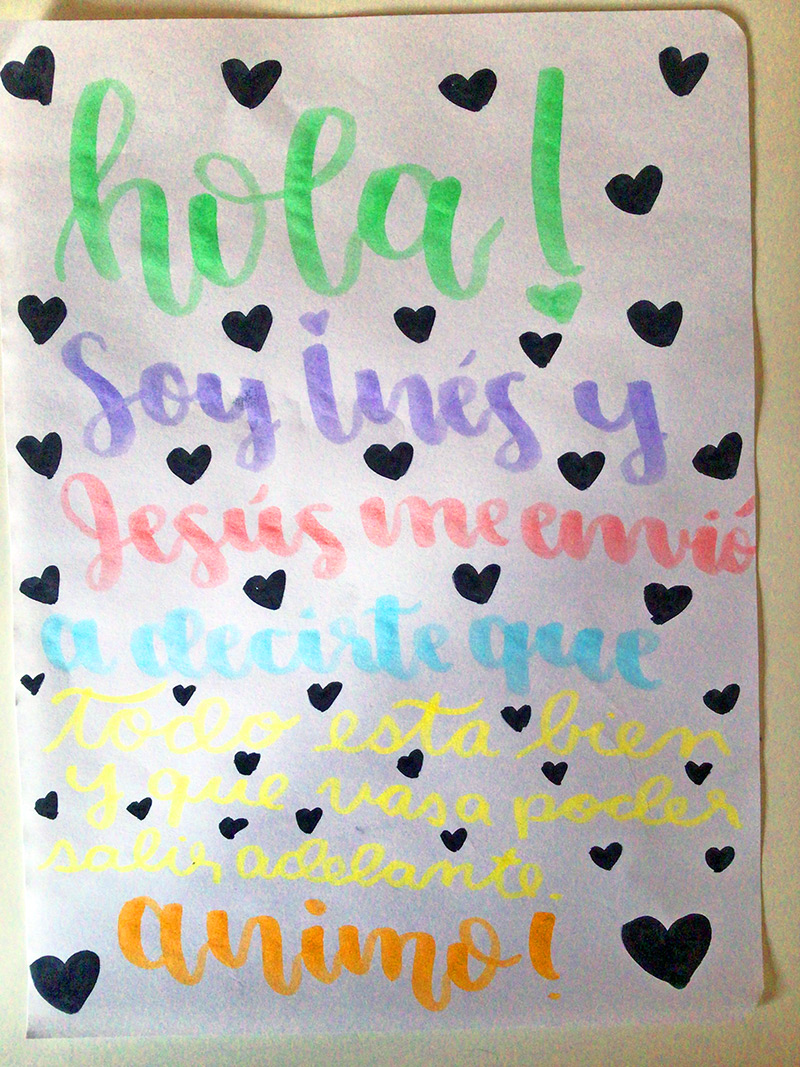 hola!
Soy Inés y
Jesús me envió
a decirte que
todo esta bien
y que vas a poder
salir adelante.
animo!